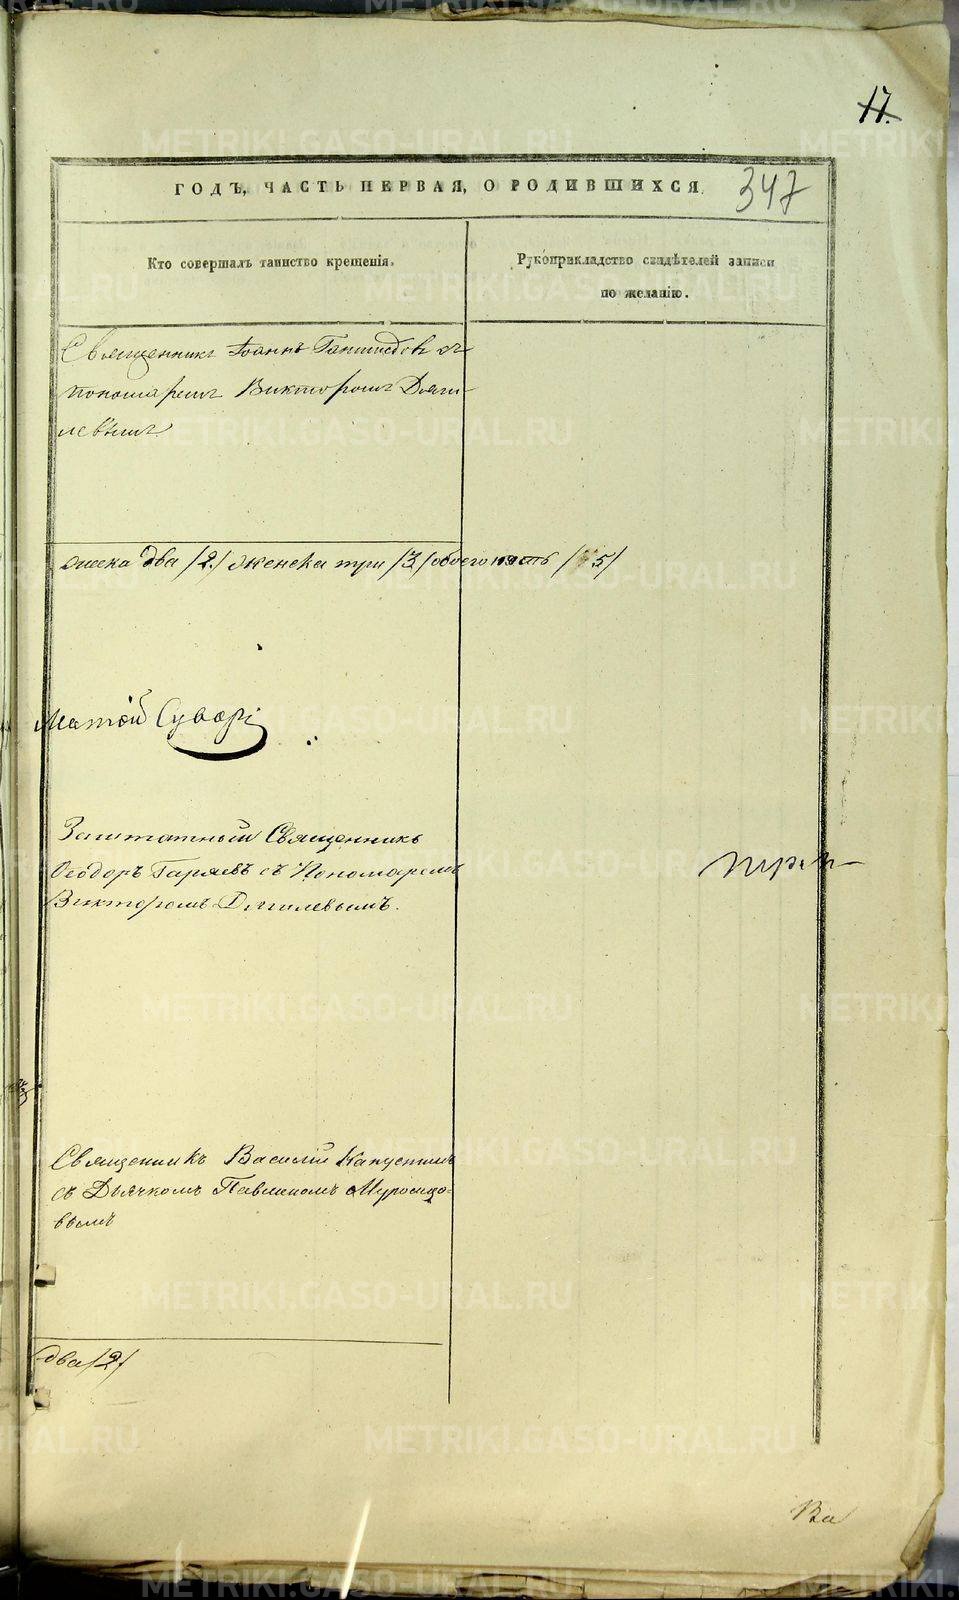 17.
ГОДЪ, ЧАСТЬ ПЕРВАЯ, О РОДИВШИХСЯ. 347
Кто совершалъ таинство крещенія.
Рукоприкладство свидѣтелей записи
по желанію.
Священникъ Іоаннъ съ
пономаремъ Викторомъ Дяги-
левымъ
два /2/ женска три /3/ обоего пять /5/
Заштатный Священникъ
Ѳеодоръ Гаряевъ съ Пономаремъ
Викторомъ Дягилевымъ.
Священникъ Василій Капустинъ
съ Дьячкомъ Павлиномъ Муромцо-
вымъ
два /2/
Ва
METRIKI.GASO-URAL.RU